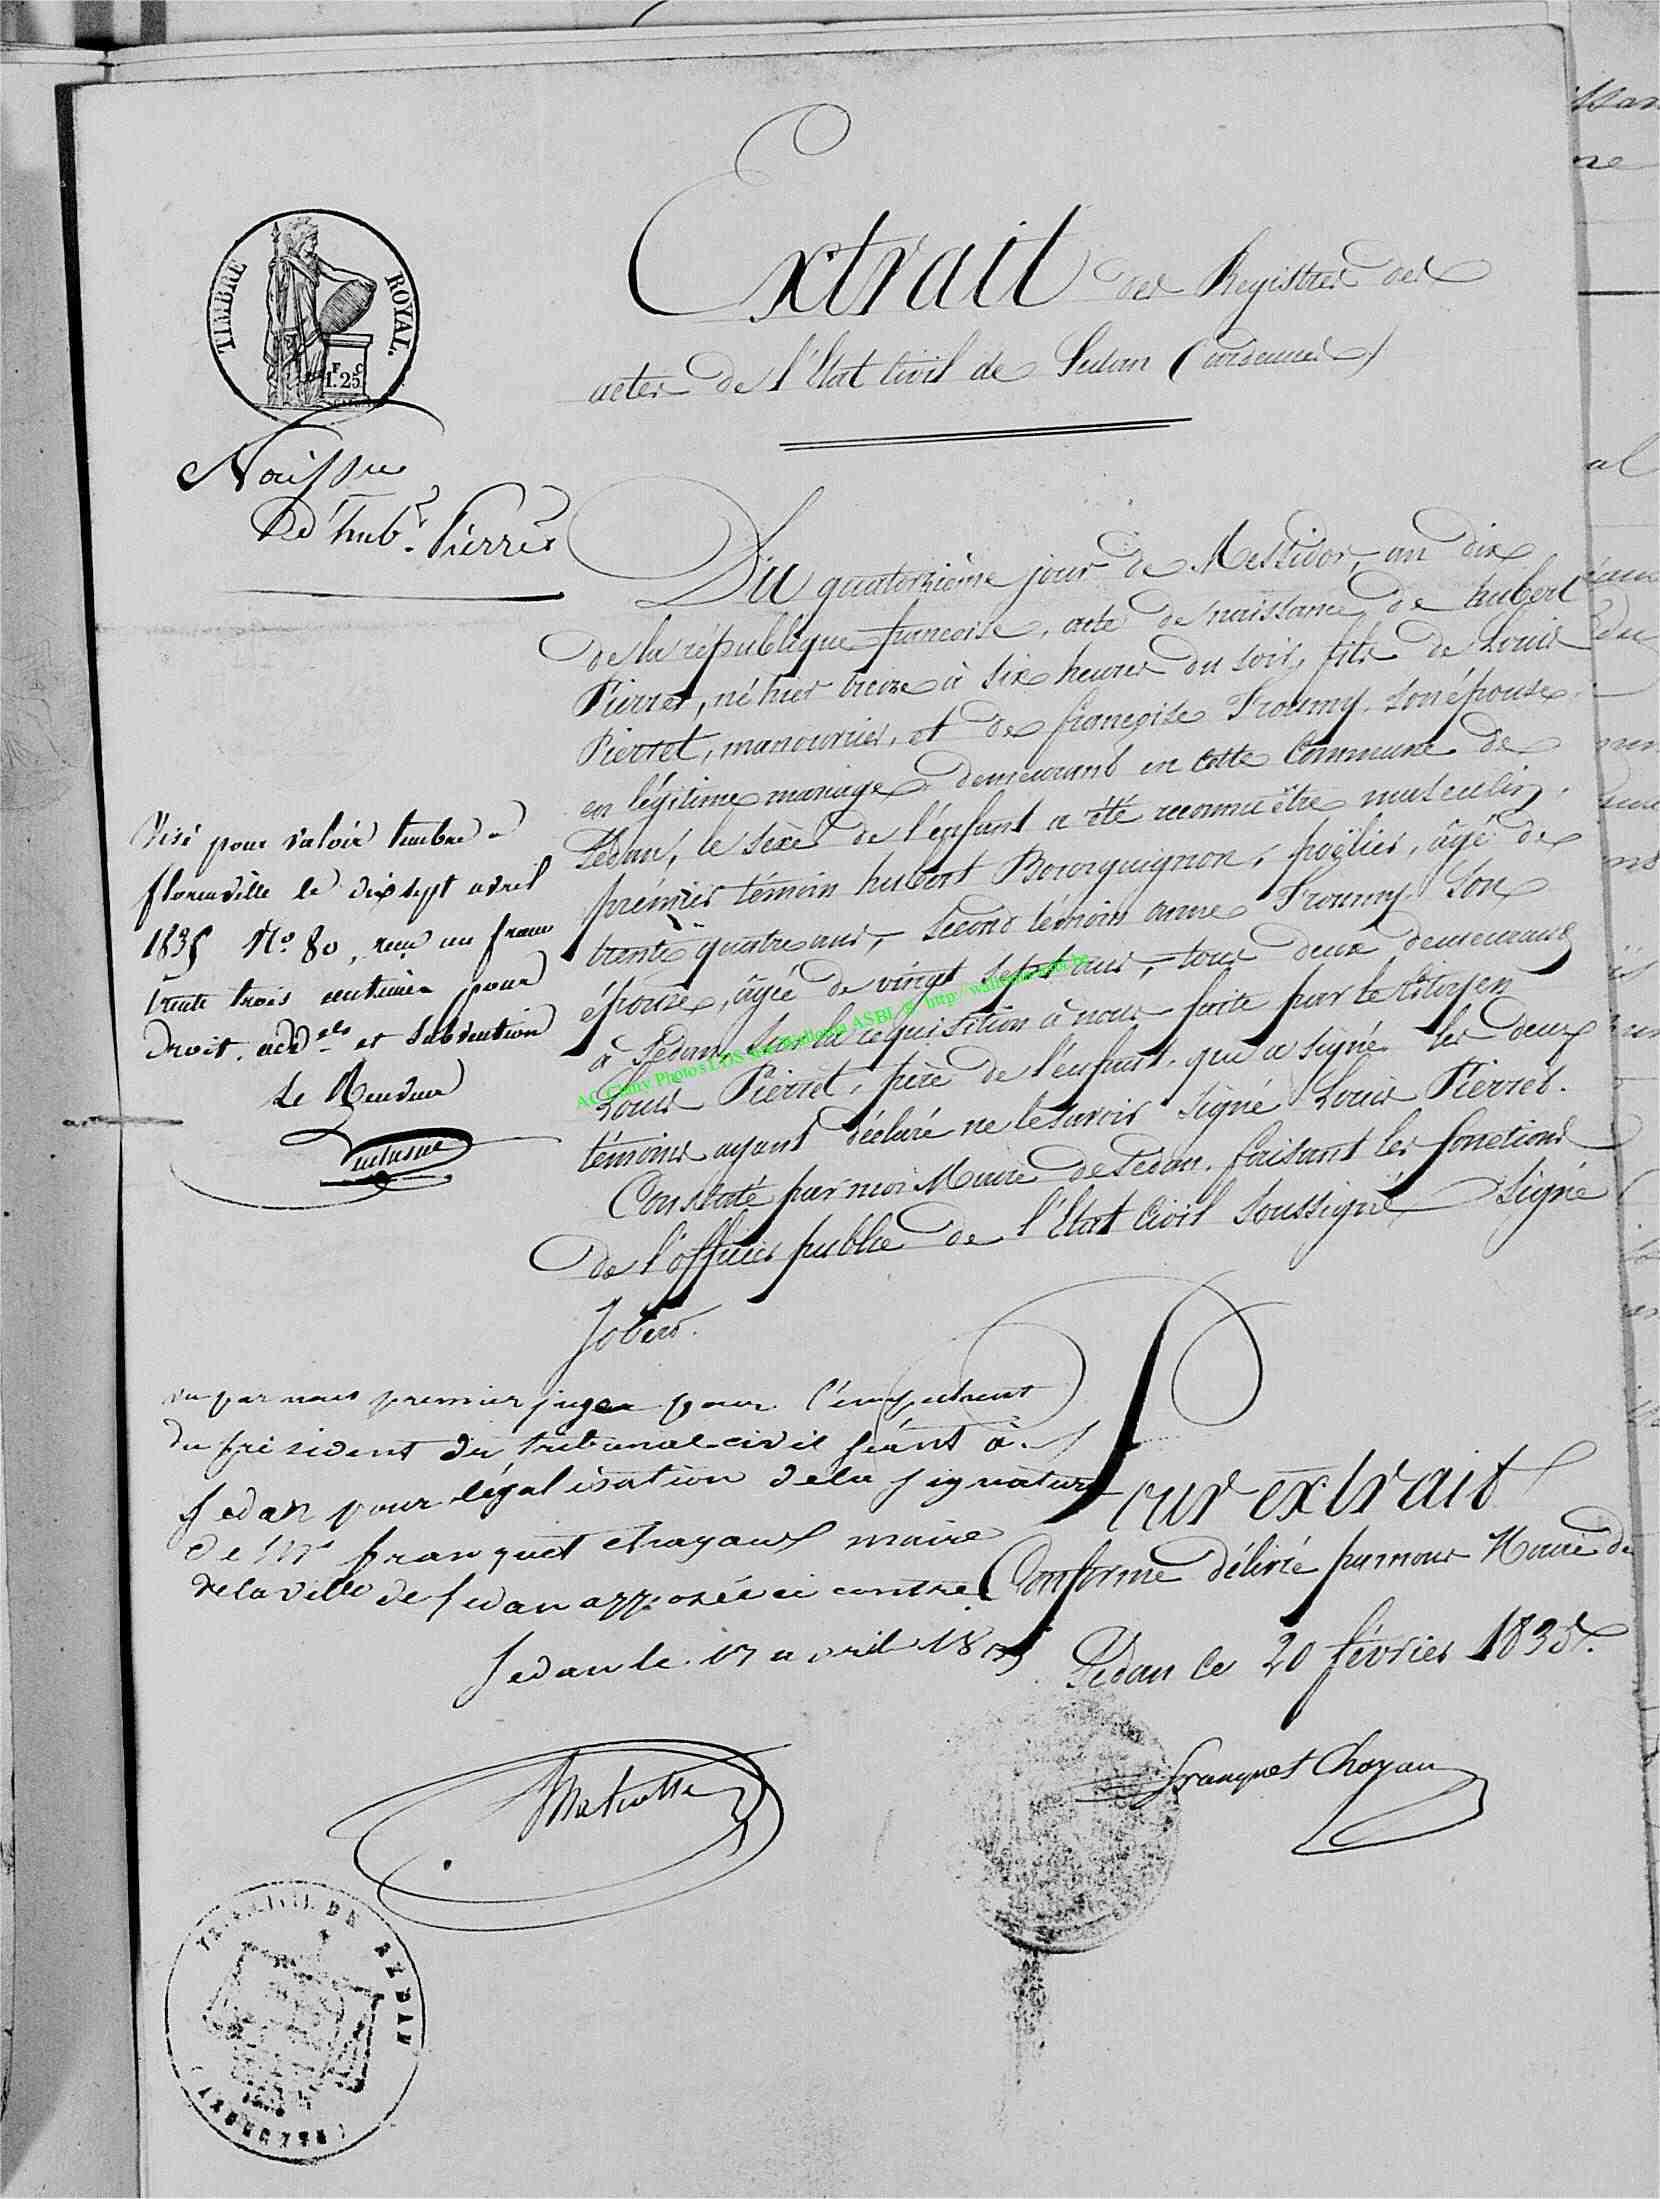 TIMBRE ROYAL.
F C
1.25
Extrait des Registres des
actes de l'Etat Civil de Sedan (ardennes)
Naissce
D'hubt. Pierret
Du quatorzième jour de Messidor, an dix
de la république francoise, acte de naissance de hubert
Pierret, né hier treize à six heures du soir, fils de Louis
Pierret, manouvrier, et de françoise Froumy, son épouse
en légitime mariage demeurant en cette Commune de
Sedan, le sexe de l'enfant a été reconnu être masculin.
prémier témoin hubert Bourguignon, poëlier, âgé de
trente quatre ans, second témoin anne Froumy son
épouse, âgée de vingt sept ans, tous deux demeurans
à Sedan, sur la requisition à nous faite par le Citoyen
Louis Pierret, père de l'enfant, qui a signé les deux
témoins ayant déclaré ne le savoir signé Louis Pierret.
Constaté par moi Maire de Sedan, faisant les fonctions
de l'officier public de l'Etat Civil soussigné signé
Jobert.
Visé pour valoir timbre à
florenville le dix sept avril
1835 No. 80, reçu un franc
trente trois centimes pour
droit, addels et subvention
Le Receveur
AC Chiny Photo's LDS
ASBL © http://
vu par nous premier juge pour l'empechement
du président du tribunal civil séant à
Sedan pour légalisation de la signature
de Mr franquet chayaux maire
de la ville de Sedan apposée ci contre
Sedan le 17 avril 1835
Pour extrait
Conforme délivré par nous Maire de
Sedan ce 20 février 1835.
franquet Chayau
TRIBUNAL DE SEDAN
(ARDENNES)